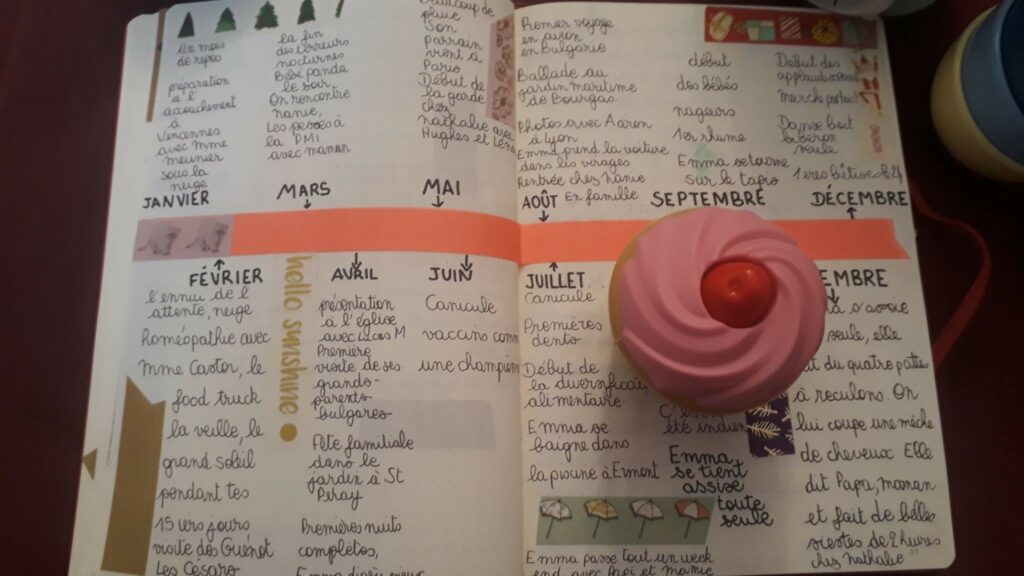 un mois
de repos
préparation
à l'
accouchement
à
Vincennes
avec mme
meunier
sous la
neige
JANVIER
la fin
des terreurs
nocturnes
Bébé panda
le soir
On rencontre
nanie,
Les pesées à
la PMI
avec maman
MARS
Beaucoup de
pluie
Son
parrain
vient à
Paris
Début de
la garde
chez
nathalie avec
Hughes et Léna
MAI
Premier voyage
en avion
en Bulgarie
Ballade au
jardin maritime
de Bourgas
Photos avec Aaron
à Lyon
Emma prend la voiture
dans les virages
Rentrée chez Nanie
En famille
AOÛT
début
des bébés
nageurs
1er rhume
Emma se tourne
sur le tapis
SEPTEMBRE
Début des
applaudissements
marche partout
Danse boit
biberon
seule
1eres bêtises le 24
DÉCEMBRE
FÉVRIER
l'ennui de l'
attente, neige
Homéopathie avec
Mme Castor, le
food truck
la veille, le
grand soleil
pendant tes
15 1ers jours
visite des Guénet
Les Césars
hello sunshine
AVRIL
présentation
à l'église
avec Lucas M
Première
visite de ses
grands-
parents
bulgares
Fête familiale
dans le
jardin à St
Péray
Premières nuits
complètes,
Emma
JUIN
Canicule
vaccins comme
une championne
JUILLET
Canicule
Premières
dents
Début de
la diversification
alimentaire
Emma se
baigne dans
la piscine à
Emma passe tout un week
end avec Papi et Mamie
été indien
Emma
se tient
assise
toute
seule
EMBRE
s'avoir
seule, elle
du quatre pattes
à reculons. On
lui coupe une mèche
de cheveux Elle
dit Papa, maman
et fait de belles
siestes de 2 heures
chez Nathalie